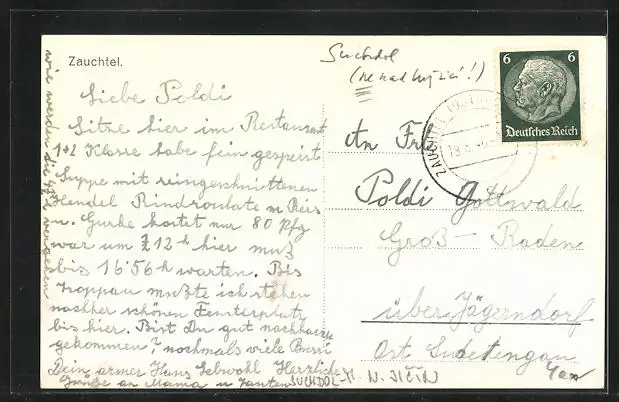 Zauchtel.
Liebe Poldi
Sitze hier im Restaurant
1+2 Klasse habe fein gespeist
Suppe mit reingeschnittenen
Rindroulate m Reis
u. Gurke kostet nur 80 Pfg
war um ½12h hier muß
bis 16 56h warten. Bis
Troppau mußte ich stehen
nachher schönen Fensterplatz
bis hier. Bist Du gut nachhause
gekommen? nochmals viele Bussi
Dein armer Hans Herzliche
Grüße an Mama u Tanten
wie werden die
Suchdol
(ne nad Lužicí!)
6 6
Deutsches Reich
ZAUCHTEL
An Frl
Poldi Gottwald
Groß-Raden
über Jägerndorf
Ost Sudetengau
SUCHDOL-N. JIČÍN